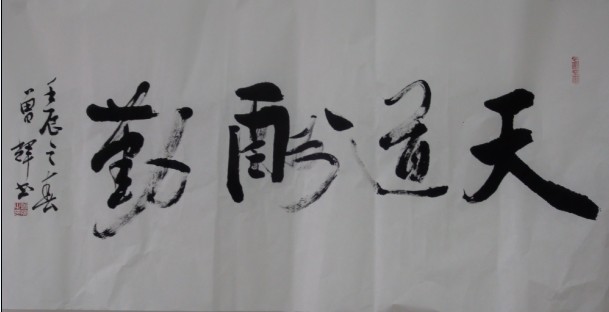 天道酬勤
壬辰之春
曾輝书